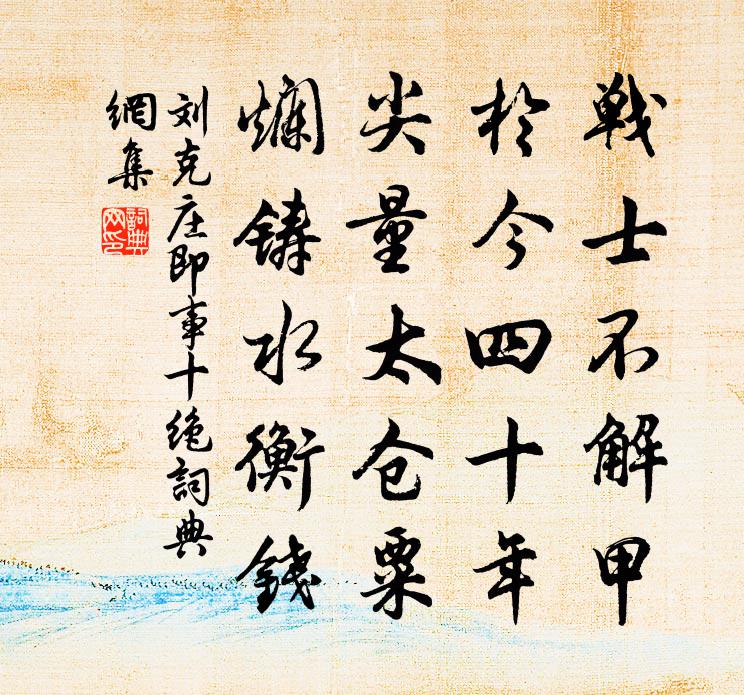 戦士不解甲
於今四十年
尖量太仓粟
爛鋳水衡錢
刘克庄即事十绝詞典
網集
詞典
网印